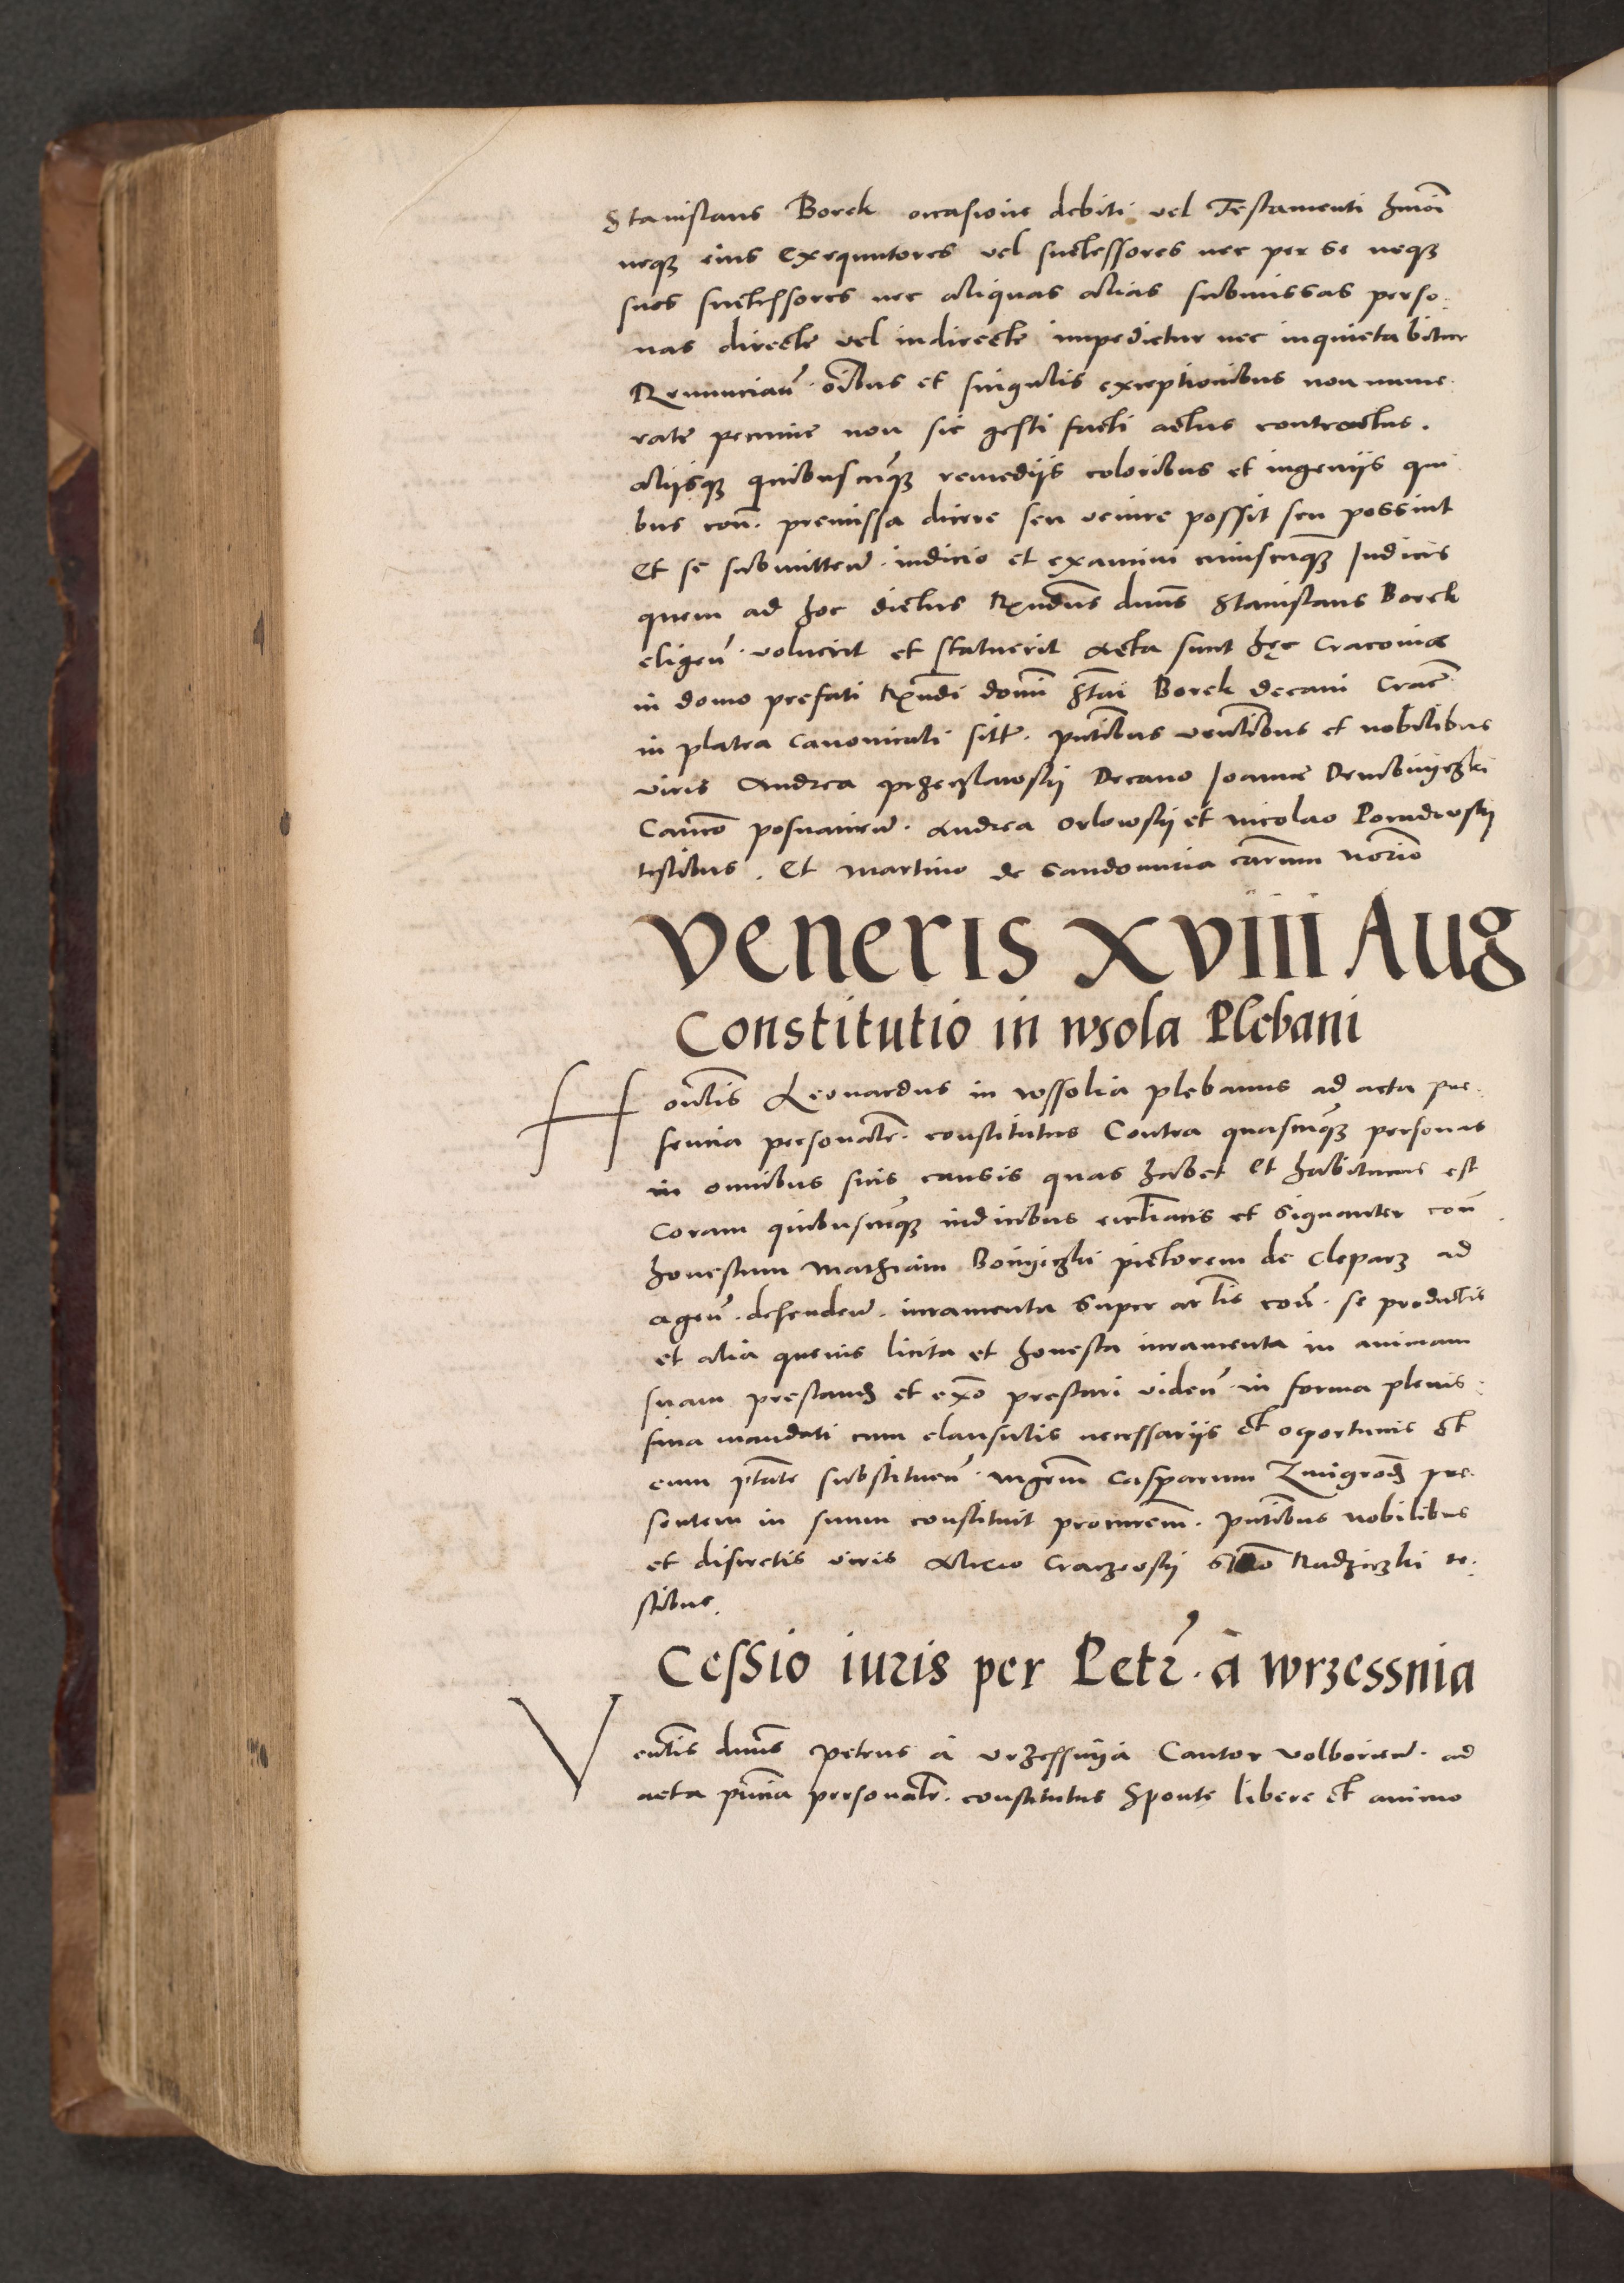 Stanislaus Borek occasione debiti vel Testamenti hmōi
neqꝫ eius exequutores vel successores nec per se neqꝫ
suos successores nec aliquas alias submissas perso⸗
nas directe vel indirecte impedietur nec inquietabitur
Renunciañ. oībus et singulis exceptionibus non nume⸗
rate pecunie non sic gesti facti actus contractus.
aliisqꝫ quibuscūqꝫ remediis coloribus et ingeniis qui
bus con̄. premissa dicere seu venire possit seu possint
Et se submitteñ. iudicio et examini cuiuscūqꝫ Iudicis
quem ad hoc dictus Rx̄ndus dnūs Stanislaus Borek
eligeñ. voluerit et statuerit Acta sunt hęc Cracoviae
in domo prefati Rx̄ndi domī Stāi Borek decani Crac̄
in platea Canonicali sitt̄. pn̄tibus veñlibus et nobilibus
viris Andrea przeczlawskij Decano Joanne Dembinyczki
Canc̄o posnanieñ. Andrea Orlowskij et Nicolao Pomdrowskij
testibus. Et Martino de Sandomiria cārum Notr̄io
Veneris XVIII Aug
Constitutio in wsola Plebani
Hon̄lis Leonardus in wssolia plebanus ad acta pre⸗
sencia personalr̄. constitutus Contra quascūqꝫ personas
in omnibus suis causis quas habet et habiturus est
Coram quibuscūqꝫ iudicibus eccl̄iacis et signanter con̄
honestum Mathiam Boinyczki pictorem de Cleparz ad
ageñ. defendeñ. iuramenta super artl̄is con̄. se productis
et alia quevis licita et honesta iuramenta in animam
suam prestand et exo̅ prestari videñ. in forma plenis⸗
sima mandati cum clausulis necessariis et oportunis Et
cum ptāte substitueñ. mgrēm Casparum Zmigrod pre⸗
sentem in suum constituit procurēm. pn̄tibus nobilibus
et discretis viris Alicio Craczowskij Radziczki te⸗
stibus.
Cessio iuris per Petr̄. à wrzessnia
Veñlis dnūs petrus à vrzessnya Cantor volborieñ. ad
acta pn̄cia personalr̄. constitutus Sponte libere et animo